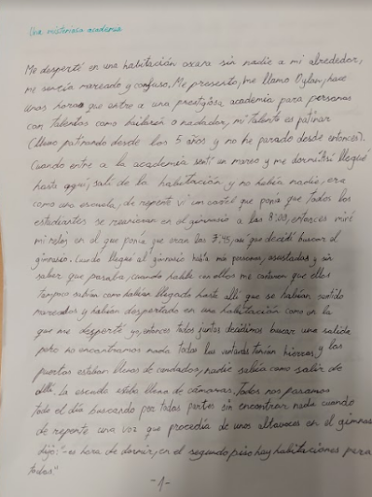 Una misteriosa academia
Me desperté en una habitación oscura sin nadie a mi alrededor,
me sentía mareado y confuso, Me presento, me llamo Dylan, hace
unas horas que entre a una prestigiosa academia para personas
con talentos como bailar o nadar, mi talento es patinar
(llevo patinando desde los 5 años y no he parado desde entonces).
Cuando entre a la academia sentí un mareo y me dormí llegué
hasta aquí, salí de la habitación y no había nadie, era
como una escuela, de repente vi un cartel que ponía que todos los
estudiantes se reunieran en el gimnasio a las 8:00, entonces miré
mi reloj en el que ponía que eran las así que decidí buscar el
gimnasio. Cuando llegue al gimnasio había personas, asustadas y sin
saber que pasaba, cuando hable con ellos me contaron que ellos
tampoco sabían como habían llegado hasta allí que se habían sentido
mareados y habían despertado en una habitación como en la
que me desperté yo, entonces todos juntos decidimos buscar una salida
pero no encontramos nada todas las ventanas tenían hierros y las
puertas estaban llenas de candados, nadie sabía como salir de
allí, la escuela estaba llena de cámaras, Todos nos pasamos
todo el día buscando por todas partes sin encontrar nada cuando
de repente una voz que procedía de unos altavoces en el gimnasio
dijo: "es hora de dormir, en el segundo piso hay habitaciones para
todos"
-1-